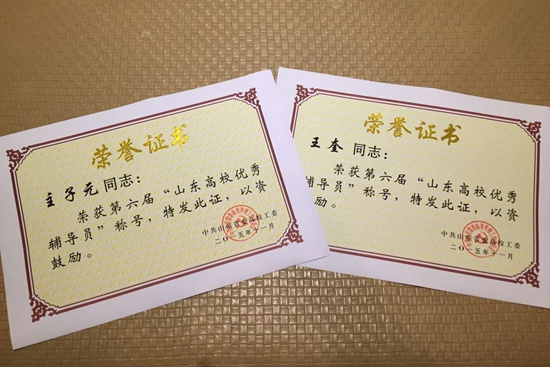 荣誉证书
主子元同志：
荣获第六届“山东高校优秀
辅导员”称号，特发此证，以资
鼓励。
中共山东省委高校工委
二〇一五年十一月
荣誉证书
王奎同志：
荣获第六届“山东高校优秀
辅导员”称号，特发此证，以资
鼓励。
中共山东省委高校工委
二〇一五年十一月